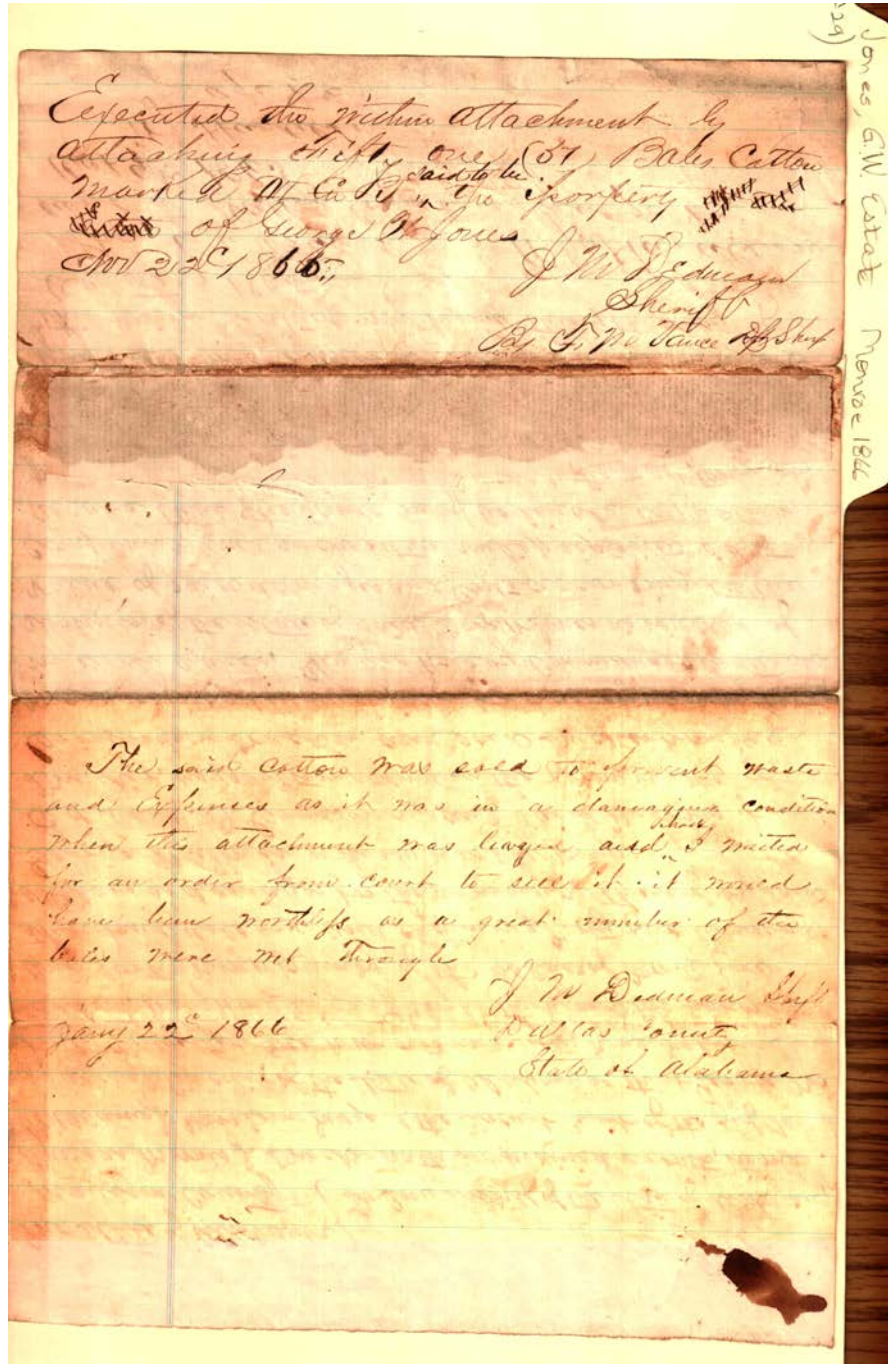 Jones, G.W. Estate Monroe 1866
29)
Executed the within attachment by
attaching Fifty one (51) Bales Cotton
marked said to be the Porpery
of George W Jones
Nov 22d 1865
J M Dedman
Sheriff
By F. M. Vance Dpt Shff
The said cotton was sold to prevent waste
and Expenses as it was in a damaging condition
when this attachment was leved and I waited
for an order from court to sell it it would
have been worthless as a great number of the
bales were wet through
J M Dedman Shff
Jany 22d 1866
Dallas County
State of Alabama